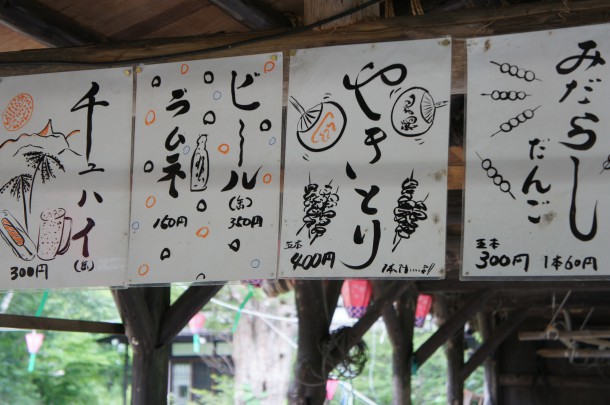 みだらし
だんご
五本
300円
1本60円
やきいとり
五本
400円
ビール
(缶)
350円
ラムネ
150円
チューハイ
(缶)
300円